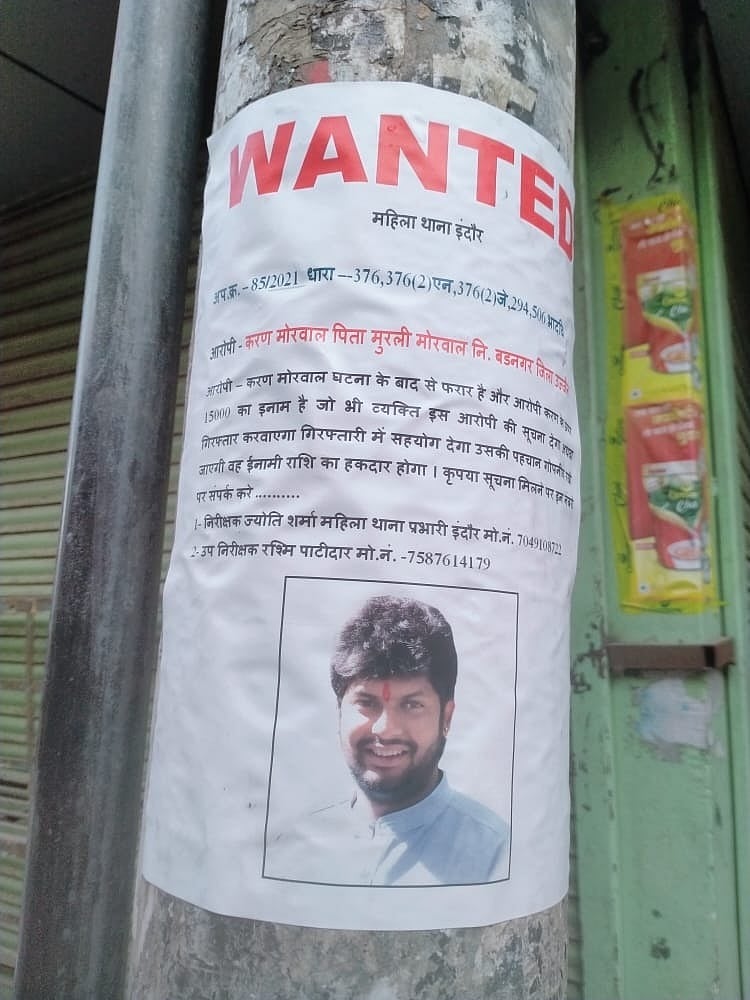 WANTED
महिला थाना इंदौर
अप.क्र. – 85/2021 धारा —376,376(2)एन,376(2)जे,294,506 भादवि
आरोपी - करण मोरवाल पिता मुरली मोरवाल नि. बडनगर जिला उज्जैन
आरोपी – करण मोरवाल घटना के बाद से फरार है और आरोपी करण
15000 का इनाम है जो भी व्यक्ति इस आरोपी की सूचना देगा
गिरफ्तार करवाएगा गिरफ्तारी में सहयोग देगा उसकी पहचान गोपनीय
जाएगी वह ईनामी राशि का हकदार होगा । कृपया सूचना मिलने पर इन
पर संपर्क करे ..........
1- निरीक्षक ज्योति शर्मा महिला थाना प्रभारी इंदौर मो.नं. 7049108722
2- उप निरीक्षक रश्मि पाटीदार मो.नं. -7587614179